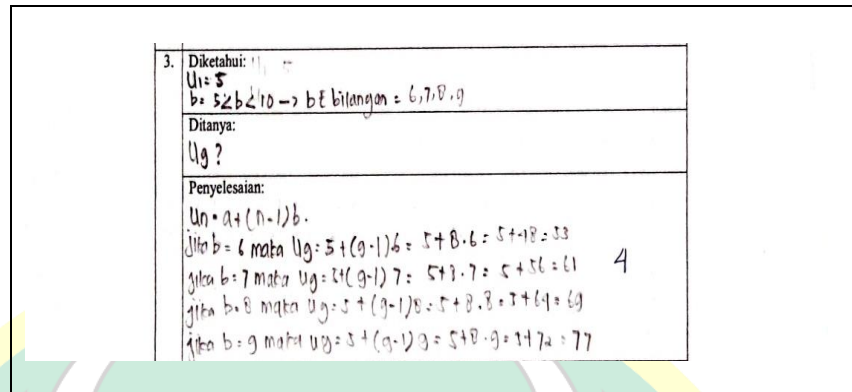 3. Diketahui:
U1 = 5
b = 5<b<10 -> b E bilangan = 6,7,8,9
Ditanya:
U9 ?
Penyelesaian:
Un = a+(n-1)b.
Jika b = 6 maka U9 = 5+(9-1)6 = 5+8.6 = 5+48 = 53
jika b = 7 maka U9 = 5+(9-1)7 = 5+8.7 = 5+56 = 61
4
jika b = 8 maka U9 = 5+(9-1)8 = 5+8.8 = 5+64 = 69
jika b = 9 maka U9 = 5+(9-1)9 = 5+8.9 = 5+72 = 77